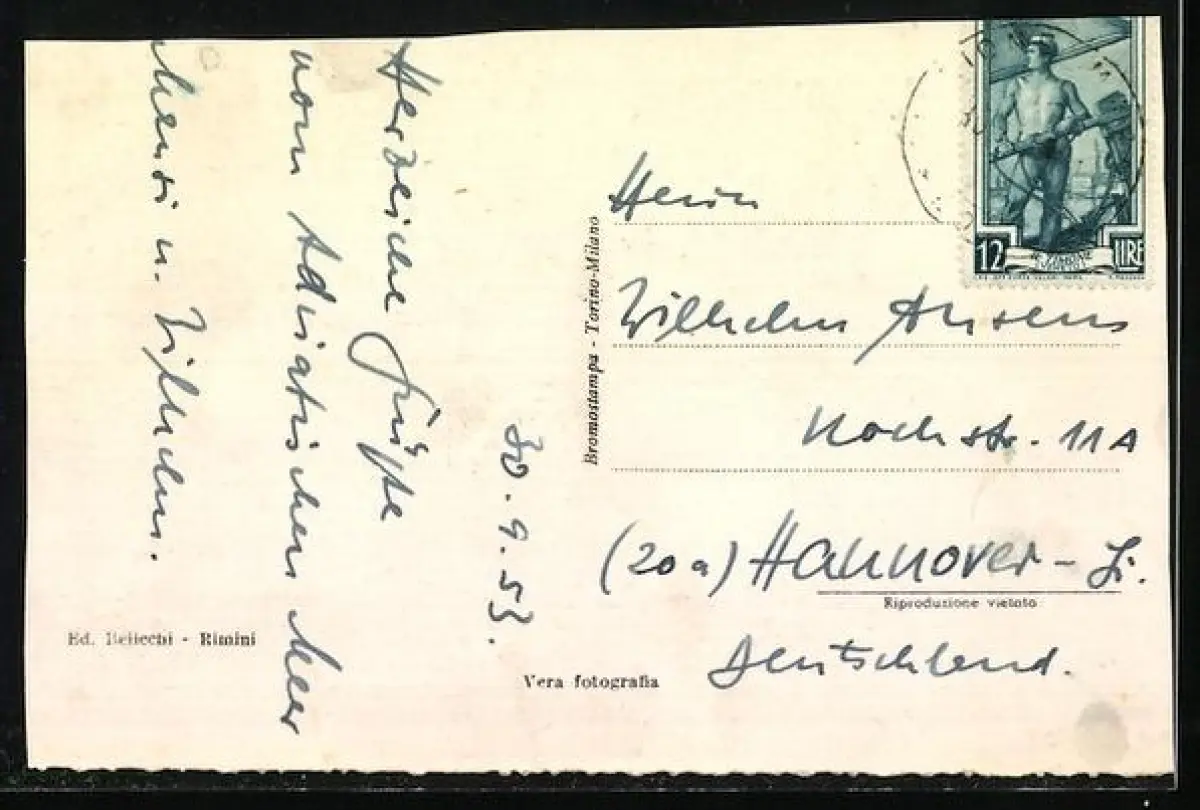 Herzliche Grüße
vom Adriatischen Meer
u. Wilhelm.
30.9.53.
Ed. Bellecchi - Rimini
Vera fotografia
Bromostampa - Torino-Milano
Herrn
Wilhelm
11A
(20a) Hannover-
Riproduzione vietata
Deutschland.
12 LIRE